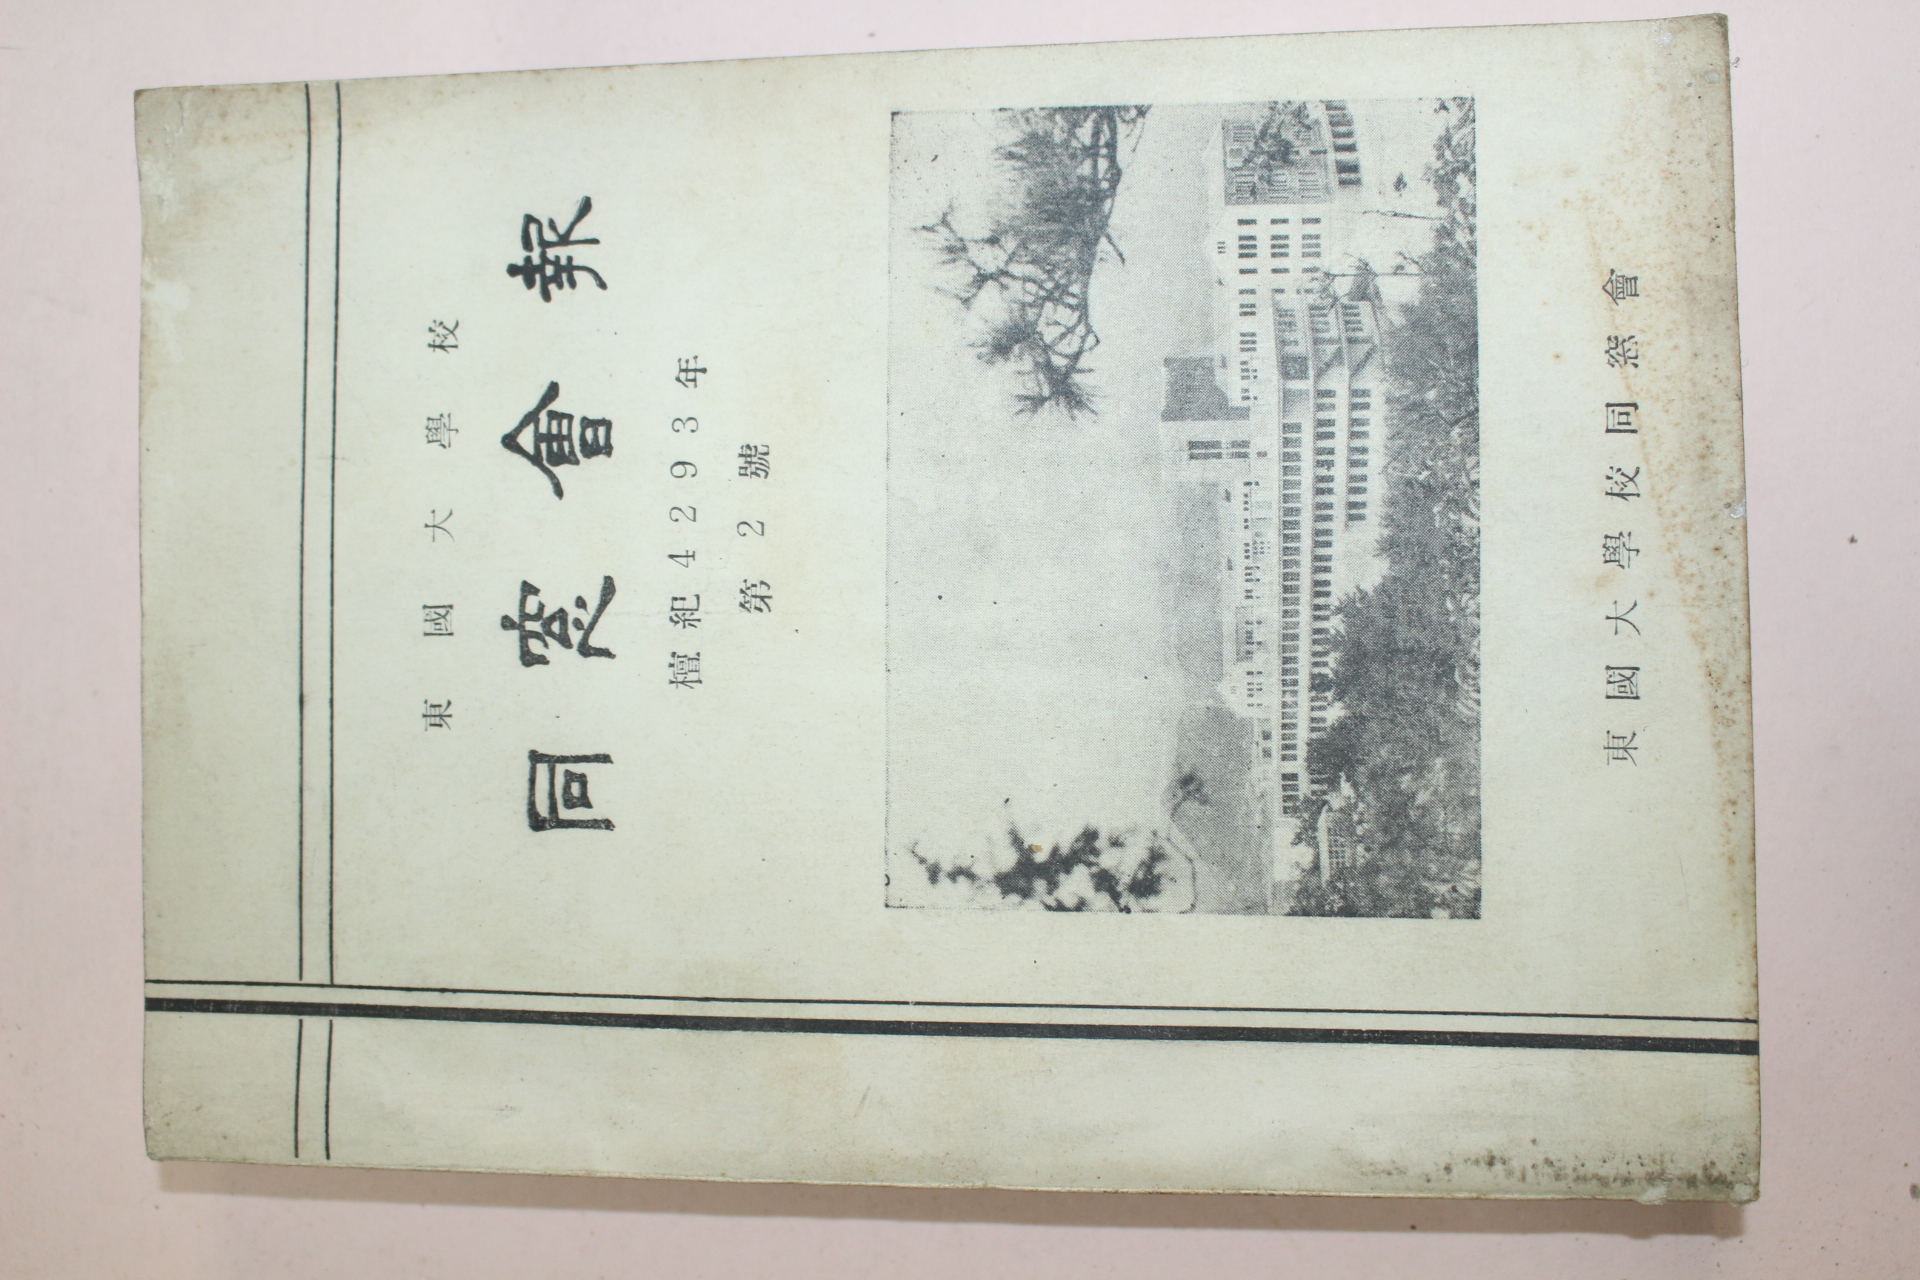 東國大學校
同窓會報
檀紀4293年
第2號
東國大學校同窓會